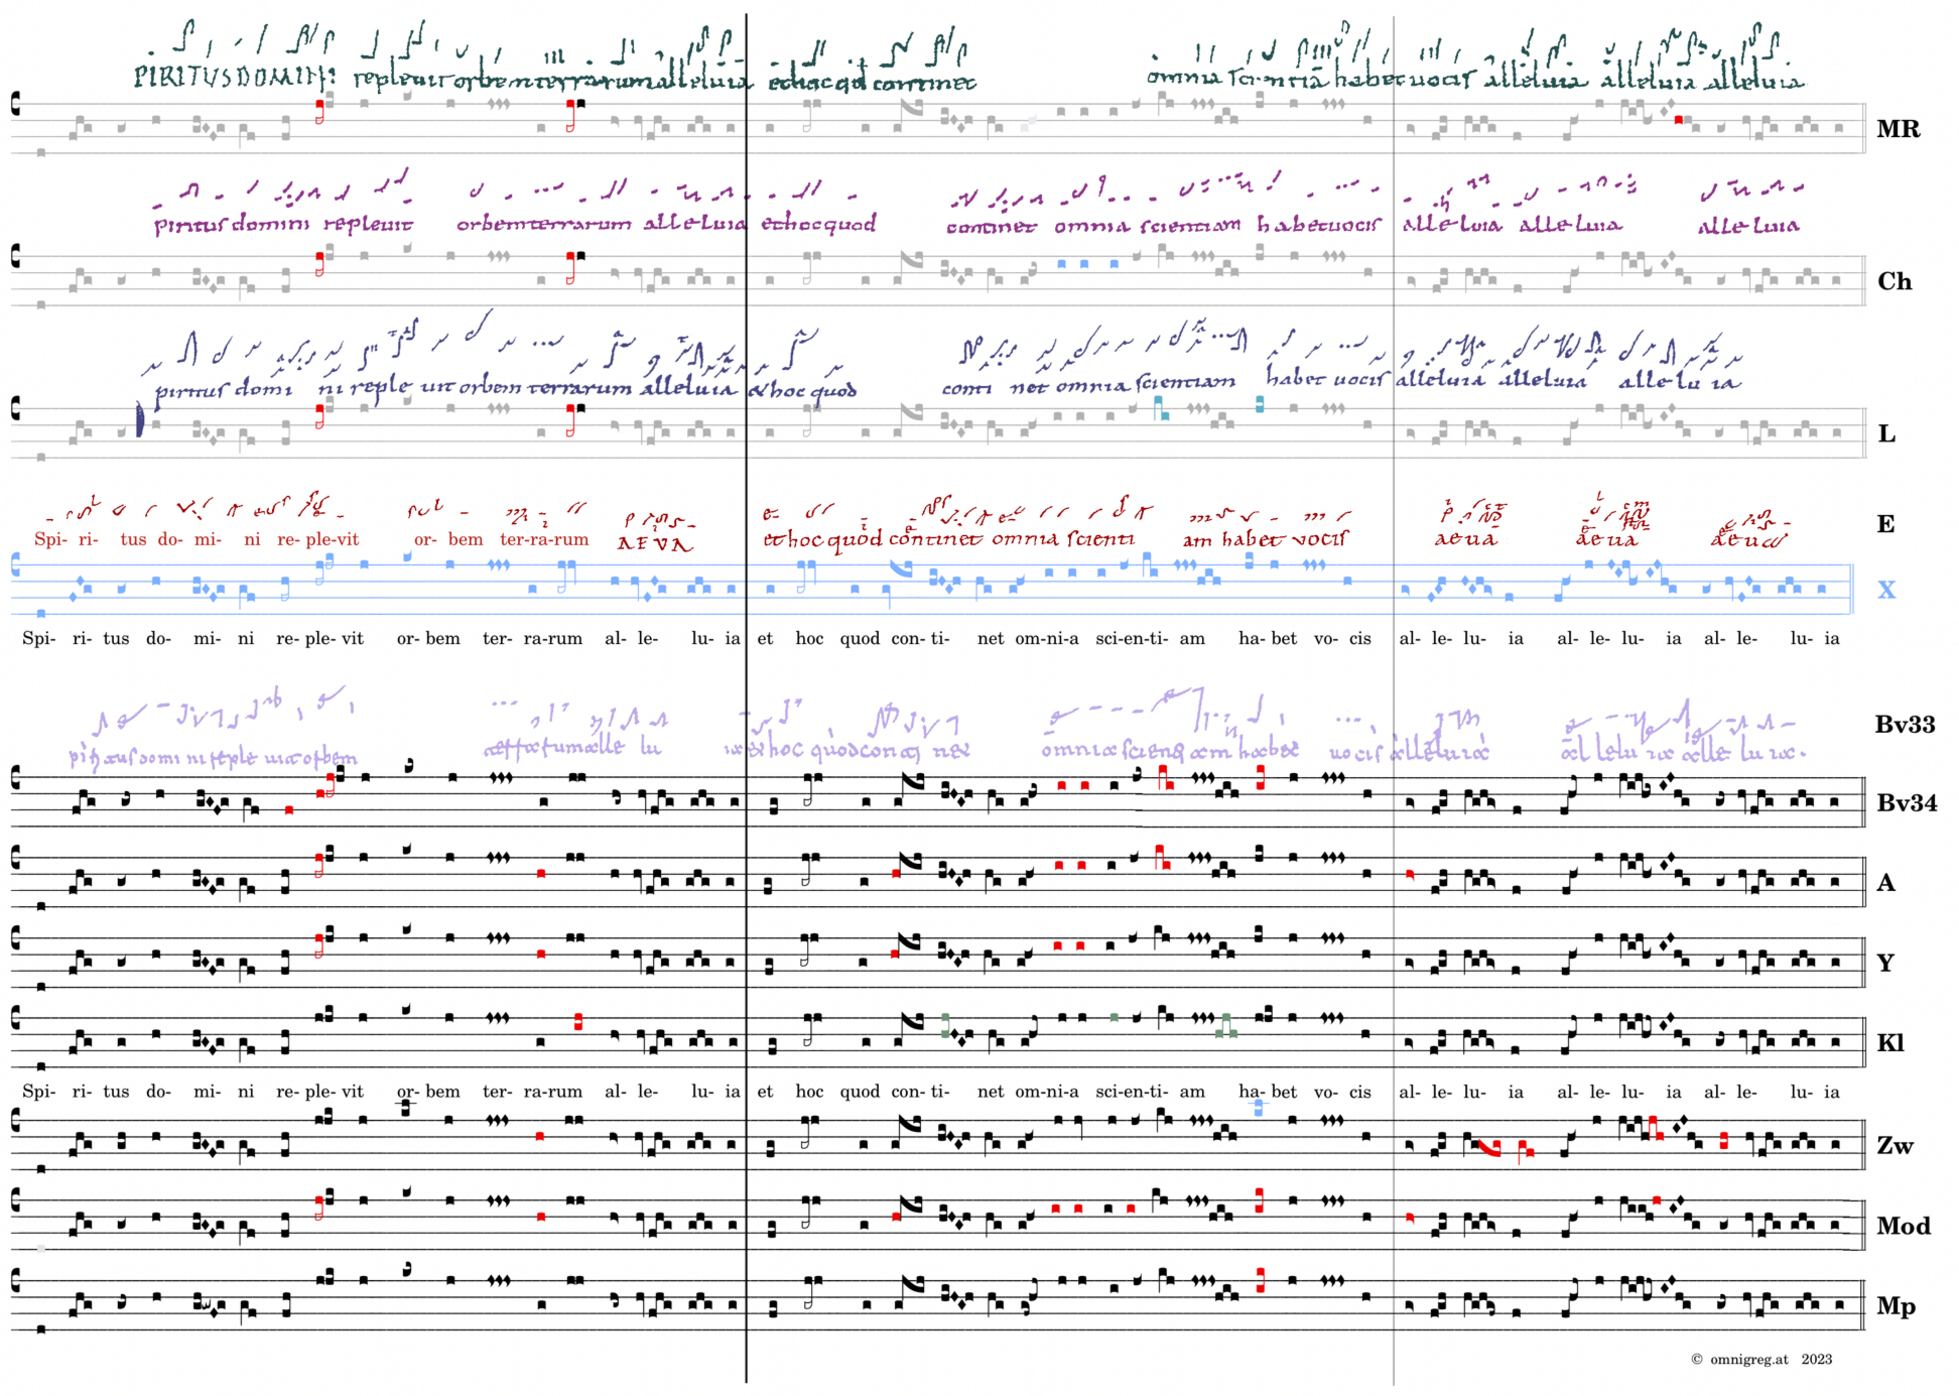 PIRITUS DOMINI repleuit orbem terrarum alleluia et hoc qd continet omnia scientiā habet uocis alleluia alleluia alleluia
MR
piritus domini repleuit orbem terrarum alleluia et hoc quod continet omnia scientiam habet uocis alleluia alleluia alleluia
Ch
piritus domi ni reple uit orbem terrarum alleluia & hoc quod conti net omnia scientiam habet uocis alleluia alleluia alle lu ia
L
Spi- ri- tus do- mi- ni re- ple-vit or- bem ter-ra-rum AEVA et hoc quod continet omnia scienti am habet vocis aeua aeua aeua
E
X
Spi- ri- tus do- mi- ni re- ple- vit or- bem ter- ra-rum al- le- lu- ia et hoc quod con- ti- net om-ni-a sci-en-ti- am ha- bet vo- cis al- le- lu- ia al- le- lu- ia al- le- lu- ia
Bv33
Bv34
A
Y
Kl
Spi- ri- tus do- mi- ni re- ple- vit or- bem ter- ra-rum al- le- lu- ia et hoc quod con- ti- net om-ni-a sci-en-ti- am ha- bet vo- cis al- le- lu- ia al- le- lu- ia al- le- lu- ia
Zw
Mod
Mp
© omnigreg.at 2023